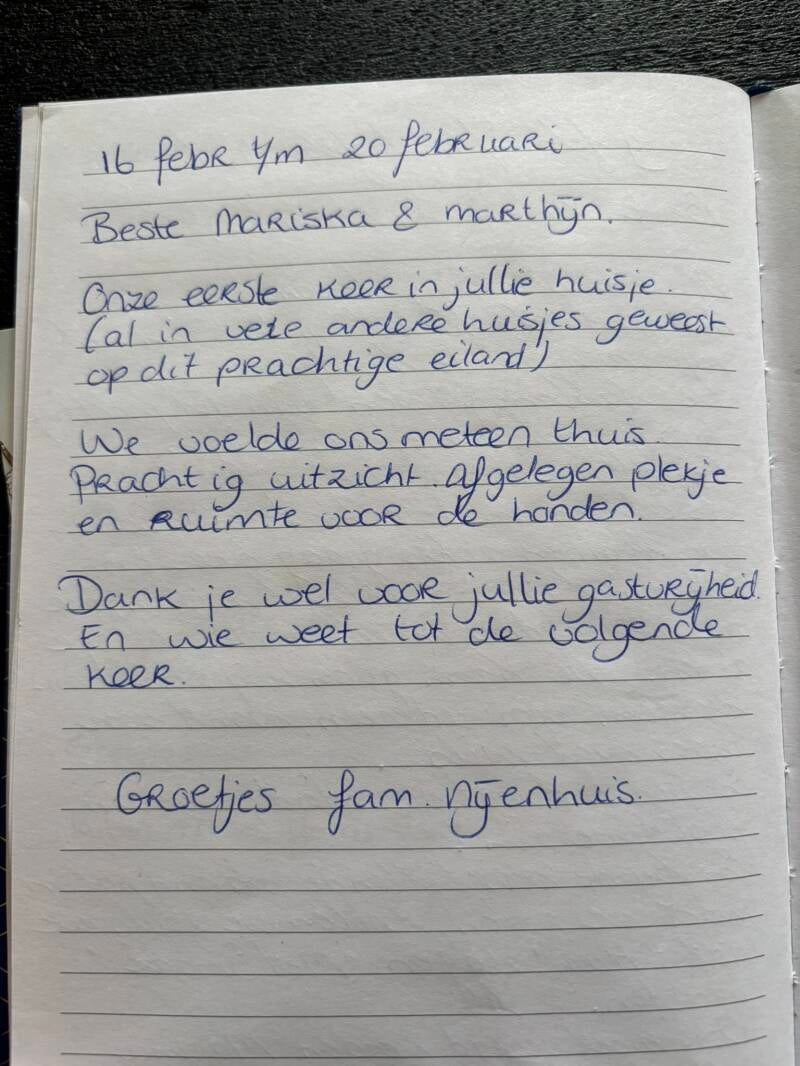 16 febr t/m 20 februari
Beste Mariska & Marthijn.
Onze eerste keer in jullie huisje.
(al in vele andere huisjes geweest
op dit prachtige eiland)
We voelde ons meteen thuis.
Prachtig uitzicht. Afgelegen plekje
en ruimte voor de honden.
Dank je wel voor jullie gastvrijheid.
En wie weet tot de volgende
keer.
Groetjes fam. Nijenhuis.